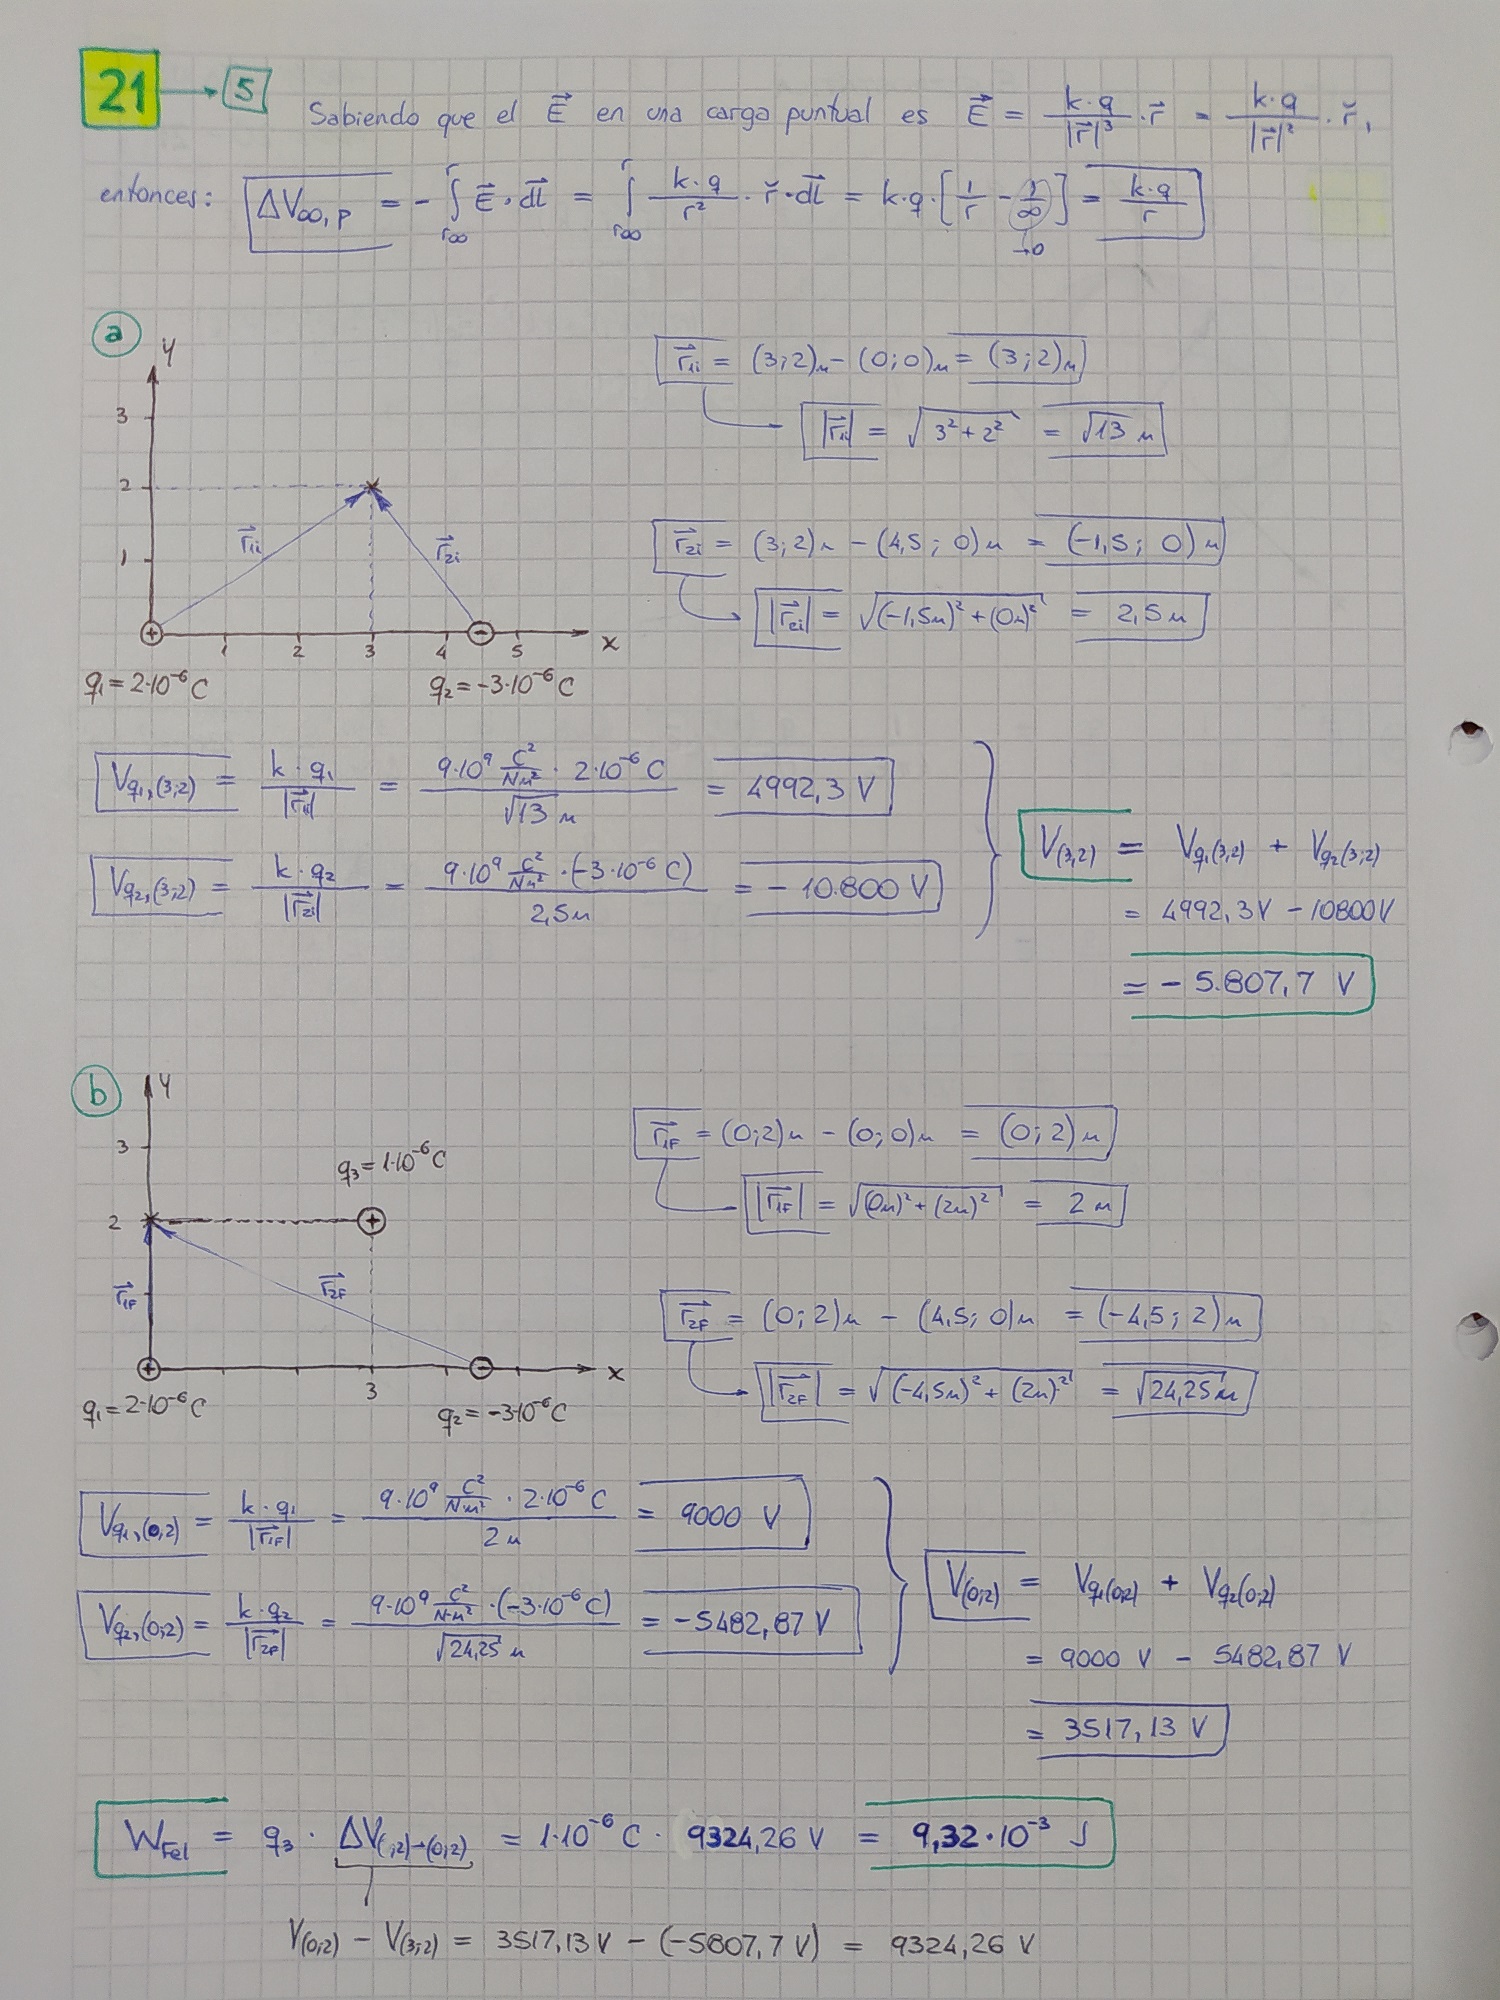 21 → 5
Sabiendo que el E⃗ en una carga puntual es E⃗ = k·q/|r⃗|³ · r⃗ = k·q/|r⃗|² · ř,
entonces: ΔV∞,P = - ∫_{r∞}^{r} E⃗ · dl⃗ = ∫_{r∞}^{r} k·q/r² · ř · dl⃗ = k·q·[1/r - 1/∞] = k·q/r
→0
a
Y
3
2
1
r⃗1i
r⃗2i
1 2 3 4 5 x
q1 = 2·10⁻⁶ C
q2 = -3·10⁻⁶ C
r⃗1i = (3;2)m - (0;0)m = (3;2)m
|r⃗1i| = √(3²+2²) = √13 m
r⃗2i = (3;2)m - (4,5;0)m = (-1,5; 0)m
|r⃗2i| = √((-1,5m)²+(0m)²) = 2,5m
Vq1,(3;2) = k·q1/|r⃗1i| = 9·10⁹ C²/Nm² · 2·10⁻⁶ C / √13 m = 4992,3 V
Vq2,(3;2) = k·q2/|r⃗2i| = 9·10⁹ C²/Nm² · (-3·10⁻⁶ C) / 2,5m = -10.800 V
V(3;2) = Vq1(3;2) + Vq2(3;2)
= 4992,3V - 10800V
= - 5.807,7 V
b
Y
3
2
q3 = 1·10⁻⁶ C
r⃗1F
r⃗2F
3 x
q1 = 2·10⁻⁶ C
q2 = -3·10⁻⁶ C
r⃗1F = (0;2)m - (0;0)m = (0;2)m
|r⃗1F| = √((0m)²+(2m)²) = 2 m
r⃗2F = (0;2)m - (4,5;0)m = (-4,5;2)m
|r⃗2F| = √((-4,5m)²+(2m)²) = √24,25 m
Vq1,(0;2) = k·q1/|r⃗1F| = 9·10⁹ C²/Nm² · 2·10⁻⁶ C / 2 m = 9000 V
Vq2,(0;2) = k·q2/|r⃗2F| = 9·10⁹ C²/N·m² · (-3·10⁻⁶ C) / √24,25 m = -5482,87 V
V(0;2) = Vq1(0;2) + Vq2(0;2)
= 9000 V - 5482,87 V
= 3517,13 V
WFel = q3 · ΔV(;2)→(0;2) = 1·10⁻⁶ C · 9324,26 V = 9,32·10⁻³ J
V(0;2) - V(3;2) = 3517,13V - (-5807,7 V) = 9324,26 V